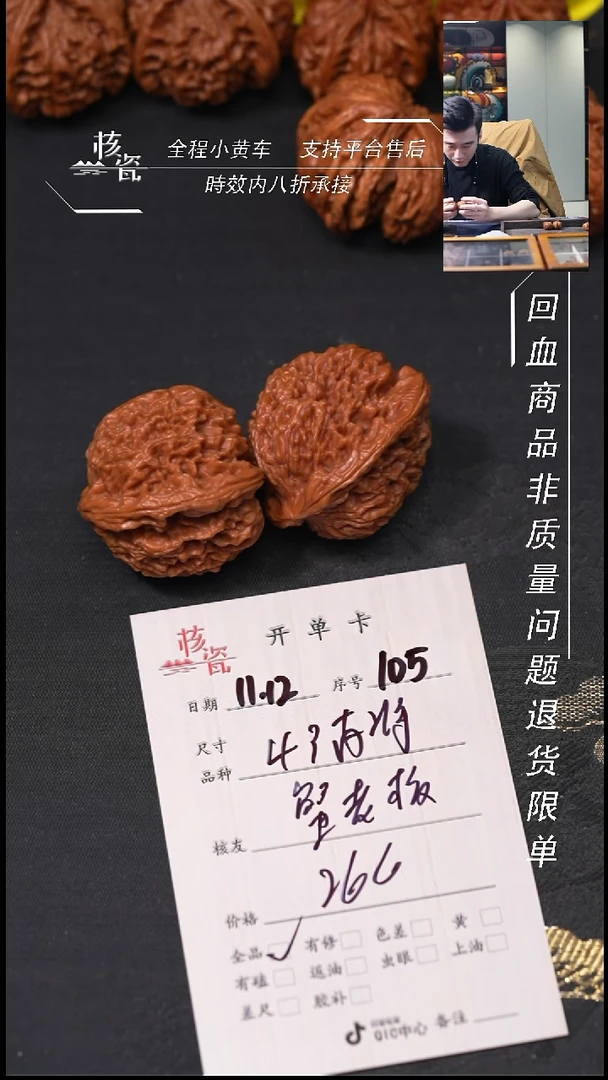 核瓷
全程小黄车 支持平台售后
時效内八折承接
回血商品非质量问题退货限单
核瓷
开单卡
日期 11.12 序号 105
尺寸
品种
蟹老板
核友
266
价格
全品 有修 色差 黄
有磕 返油 虫眼 上油
差尺 胶补
QIC中心 备注